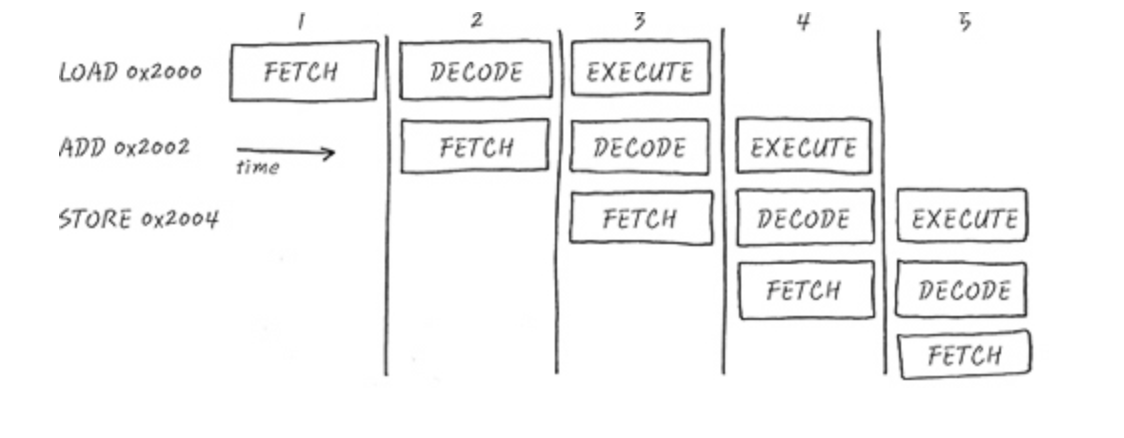 1 2 3 4 5
LOAD 0x2000 FETCH DECODE EXECUTE
ADD 0x2002 FETCH DECODE EXECUTE
time
STORE 0x2004 FETCH DECODE EXECUTE
FETCH DECODE
FETCH